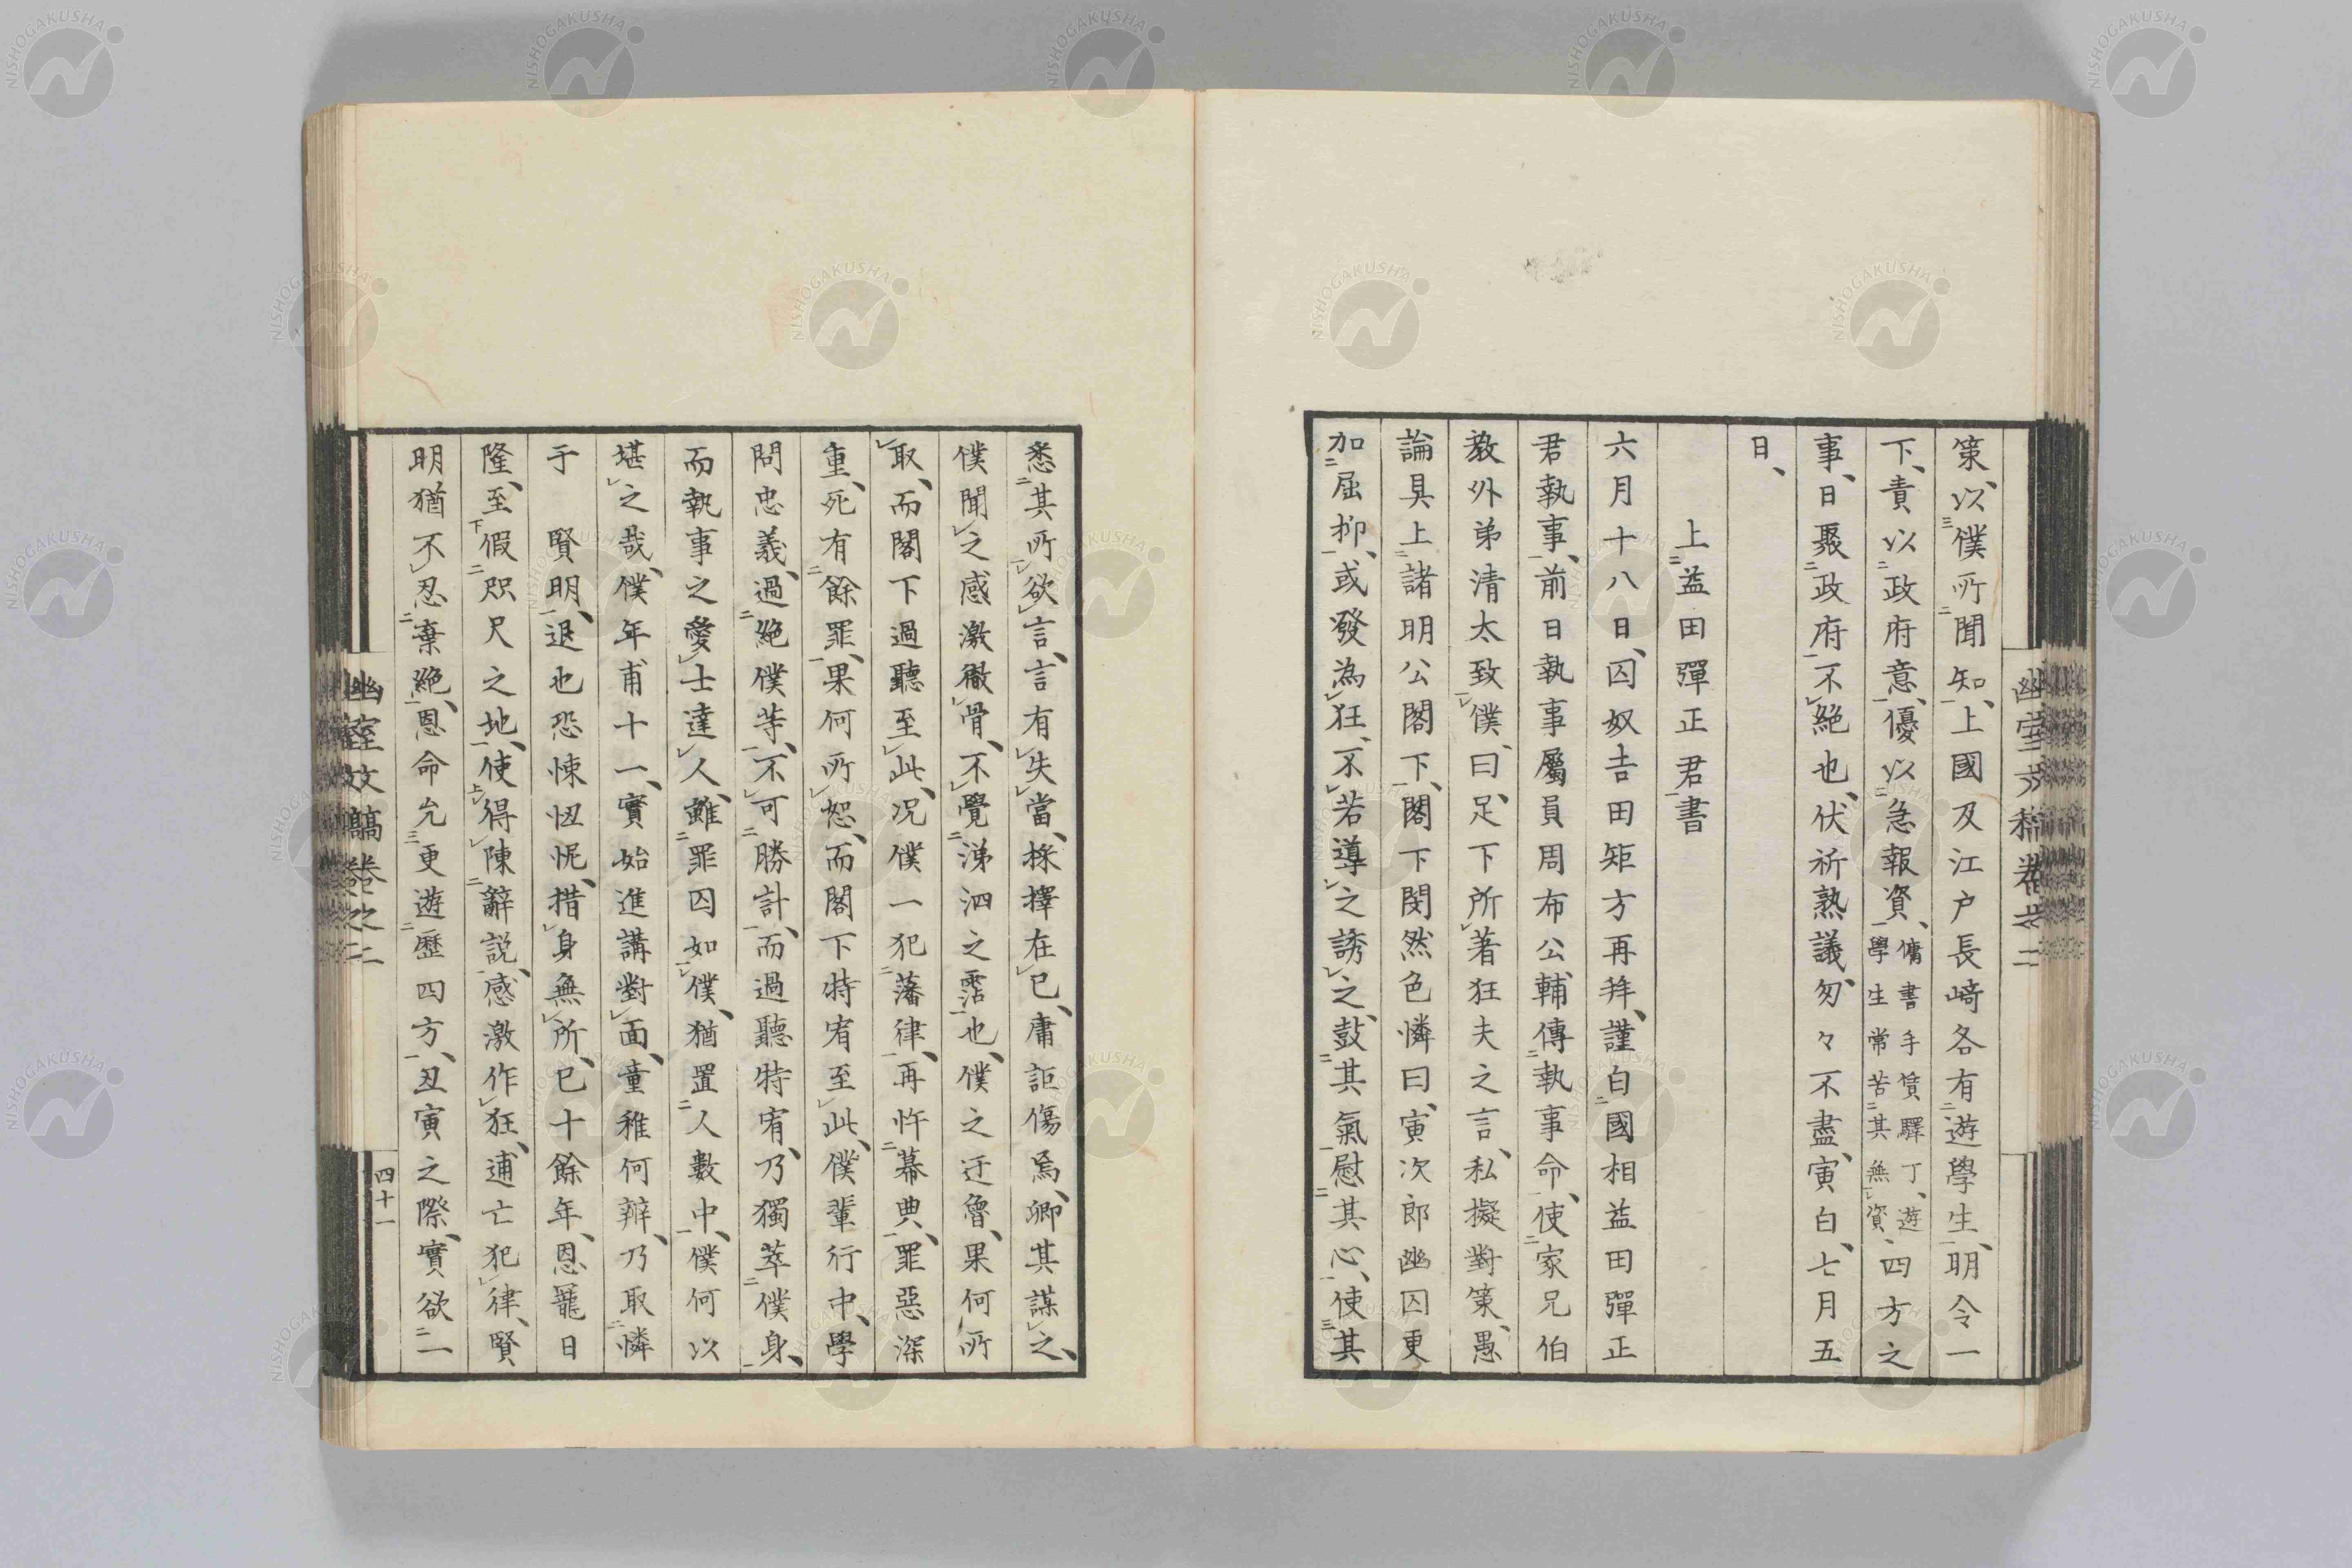 幽室文稿卷之二
策、以僕所聞知、上國及江户長﨑各有遊學生、明令一
下、責以政府意、優以急報資、傭書手賃驛丁、遊學生常苦其無資、四方之
事、日聚政府不絶也、伏祈熟議、匆々不盡、寅白、七月五
日、
上益田彈正君書
六月十八日、囚奴吉田矩方再拜、謹白國相益田彈正
君執事、前日執事屬員周布公輔傳執事命、使家兄伯
教外弟清太致僕、曰、足下所著狂夫之言、私擬對策、愚
論具上諸明公閣下、閣下閔然色憐曰、寅次郎幽囚更
加屈抑、或發為狂、不若導之誘之、鼓其氣慰其心、使其
悉其所欲言、言有失當、採擇在已、庸詎傷焉、卿其謀之、
僕聞之感激徹骨、不覺涕泗之霑也、僕之迂魯、果何所
取、而閣下過聽至此、况僕一犯藩律、再忤幕典、罪惡深
重、死有餘罪、果何所恕、而閣下特宥至此、僕輩行中、學
問忠義、過絶僕等、不可勝計、而過聽特宥、乃獨萃僕身、
而執事之愛士達人、雖罪囚如僕、猶置人數中、僕何以
堪之哉、僕年甫十一、實始進講對面、童稚何辧、乃取憐
于　賢明、退也恐悚忸怩、措身無所、已十餘年、恩寵日
隆、至假咫尺之地、使得陳辭説、感激作狂、逋亡犯律、賢
明猶不忍棄絶、恩命允更遊歷四方、丑寅之際、實欲一
幽室文稿卷之二
四十一